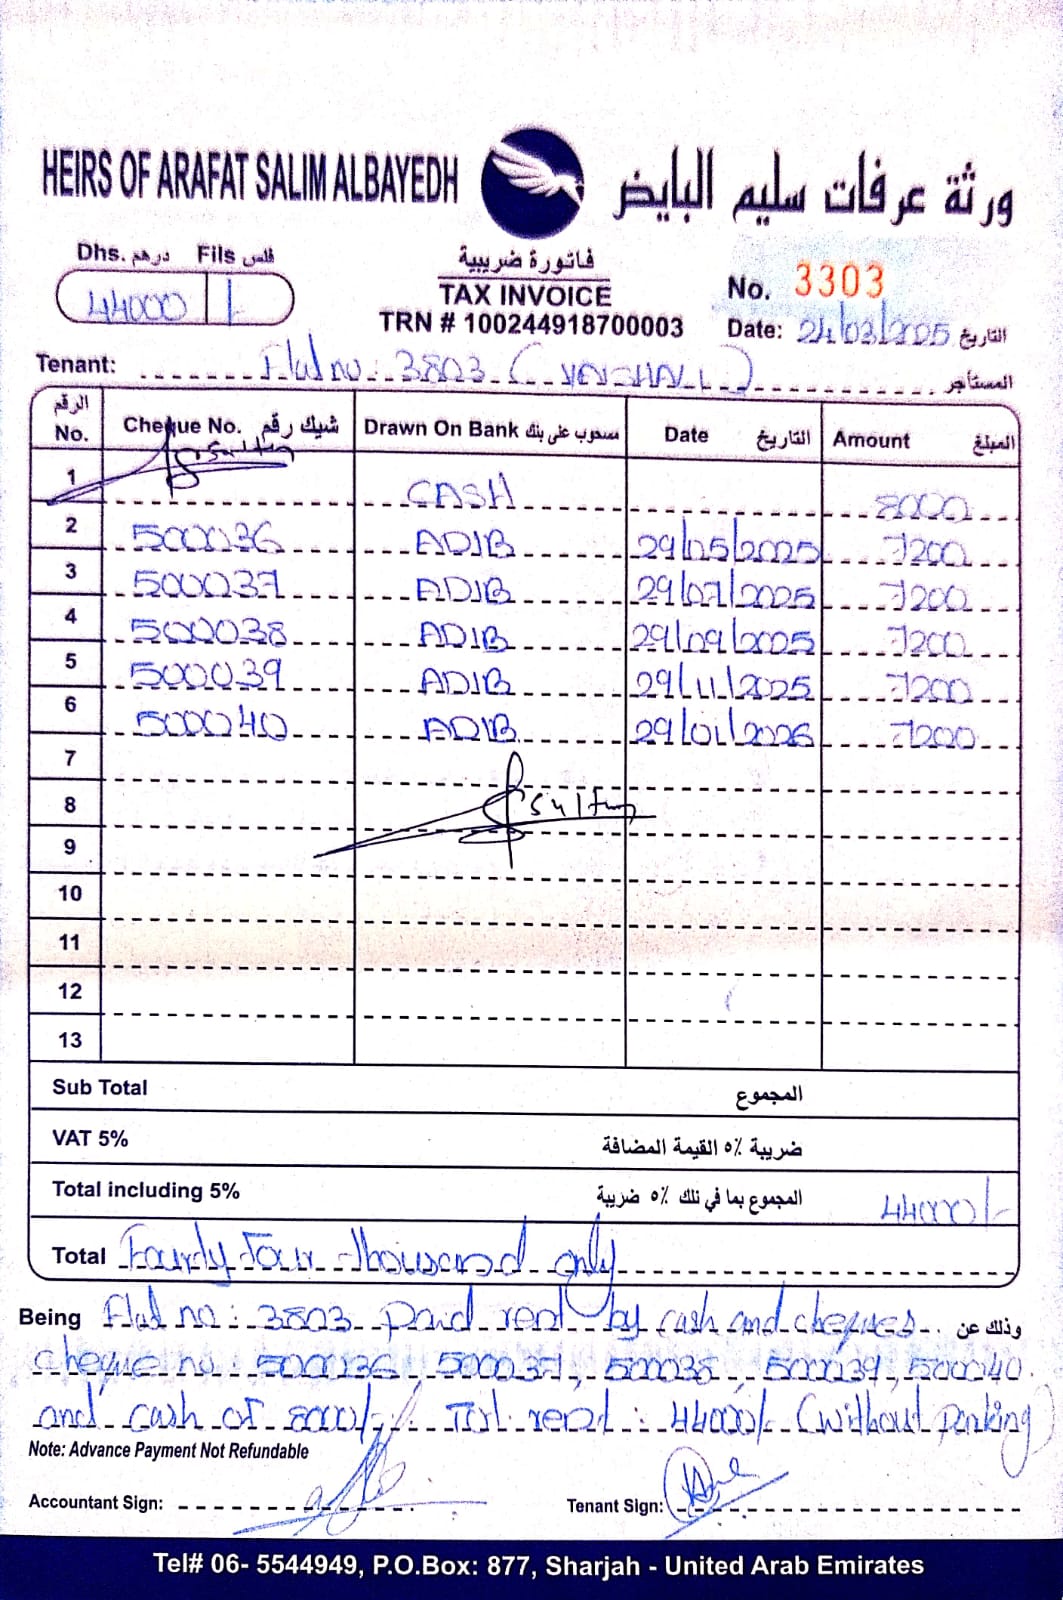 HEIRS OF ARAFAT SALIM ALBAYEDH ورثة عرفات سليم البايض
Dhs. درهم Fils فلس
44000 /-
فاتورة ضريبية
TAX INVOICE
TRN # 100244918700003
No. 3303
Date: 24/03/2025 التاريخ
Tenant: Flat no: 3803 (VAISHALI) المستأجر
الرقم No. Cheque No. شيك رقم Drawn On Bank مسحوب على بنك Date التاريخ Amount المبلغ
Sultan
1 CASH 8000
2 500036 ADIB 29/05/2025 7200
3 500037 ADIB 29/07/2025 7200
4 500038 ADIB 29/09/2025 7200
5 500039 ADIB 29/11/2025 7200
6 500040 ADIB 29/01/2026 7200
7
8 Sultan
9
10
11
12
13
Sub Total المجموع
VAT 5% ضريبة ٥٪ القيمة المضافة
Total including 5% المجموع بما في ذلك ٥٪ ضريبة 44000/-
Total Fourty Four thousand only
Being Flat no: 3803 paid rent by cash and cheques وذلك عن
cheque no: 500036, 500037, 500038, 500039, 500040
and cash of 8000/-. Tot. rent: 44000/- (without parking)
Note: Advance Payment Not Refundable
Accountant Sign: Tenant Sign:
Tel# 06- 5544949, P.O.Box: 877, Sharjah - United Arab Emirates